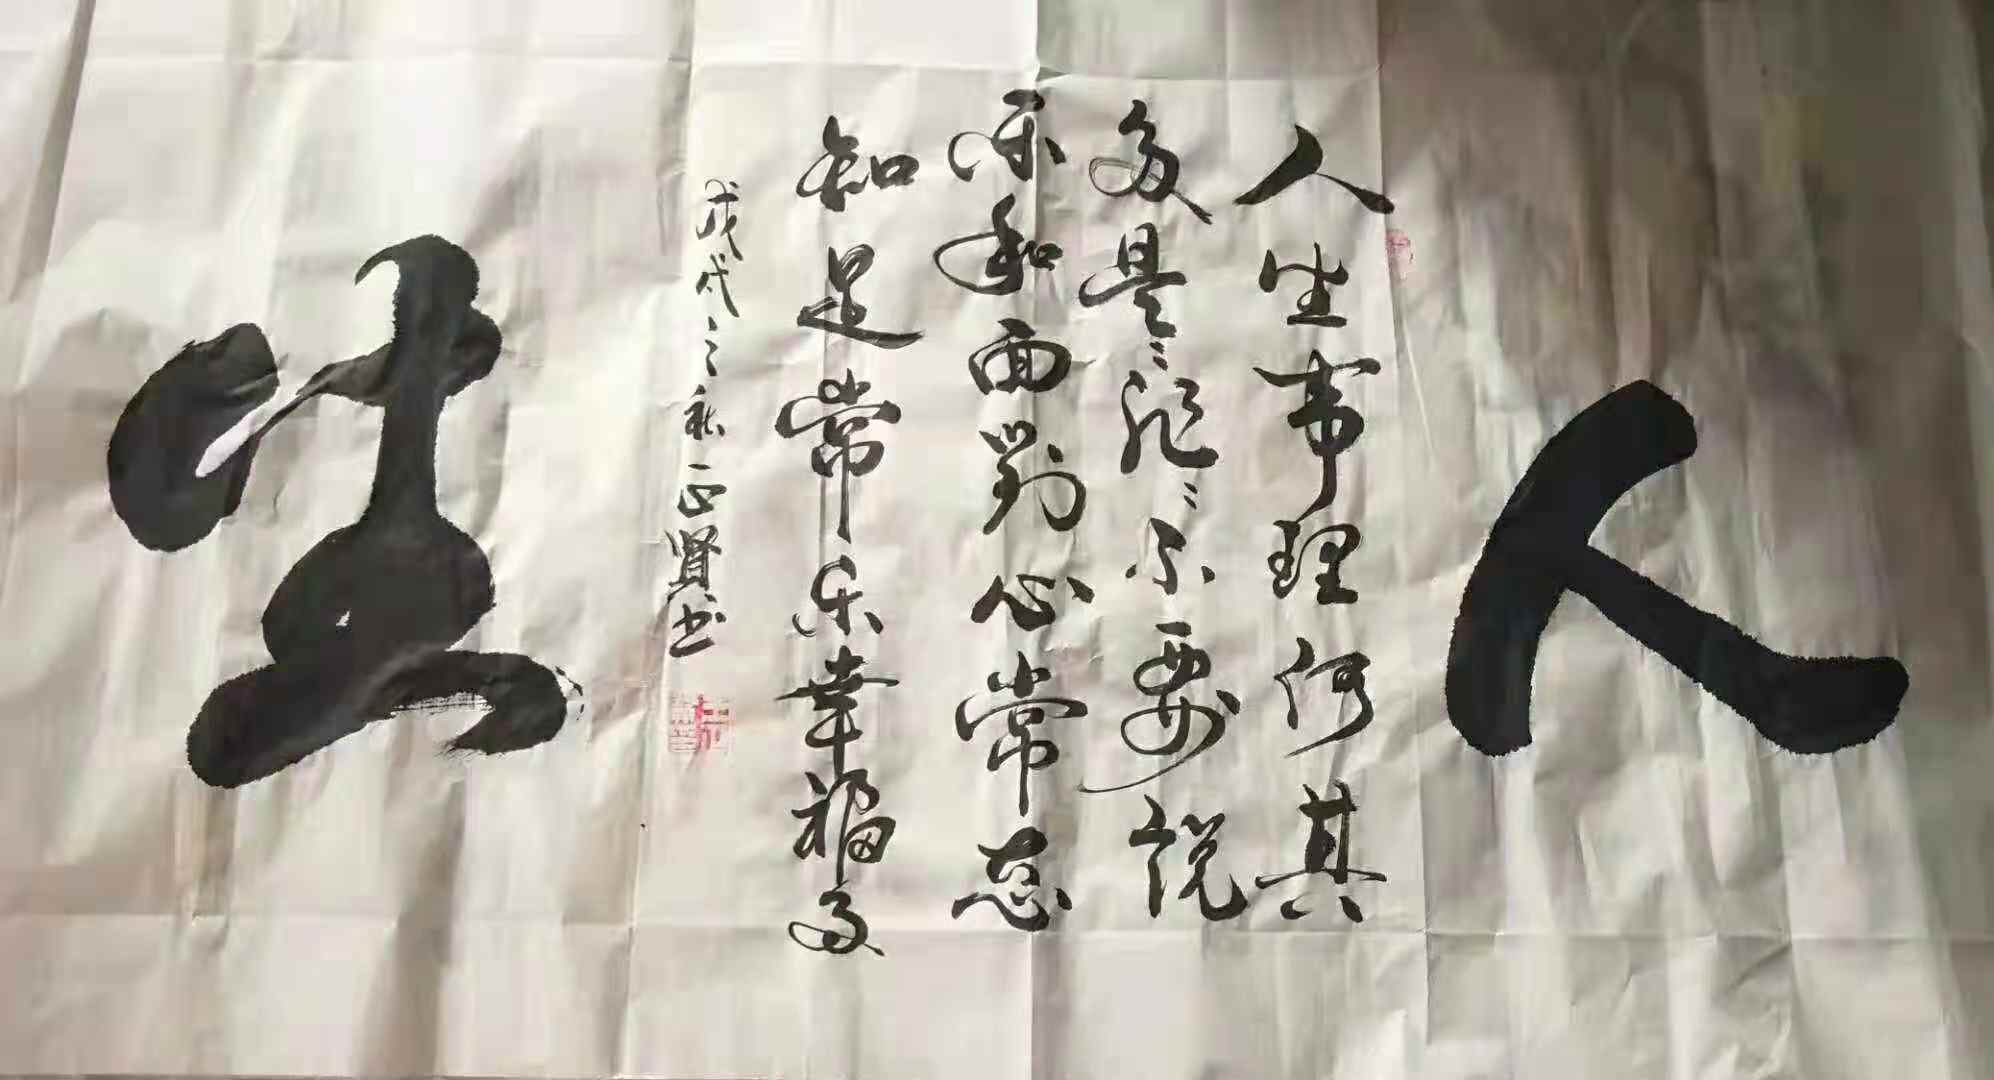 人
人生事理何其
多是〻非〻不要說
和面對心常
知足常乐幸福多
戊戌之秋正賢书
生